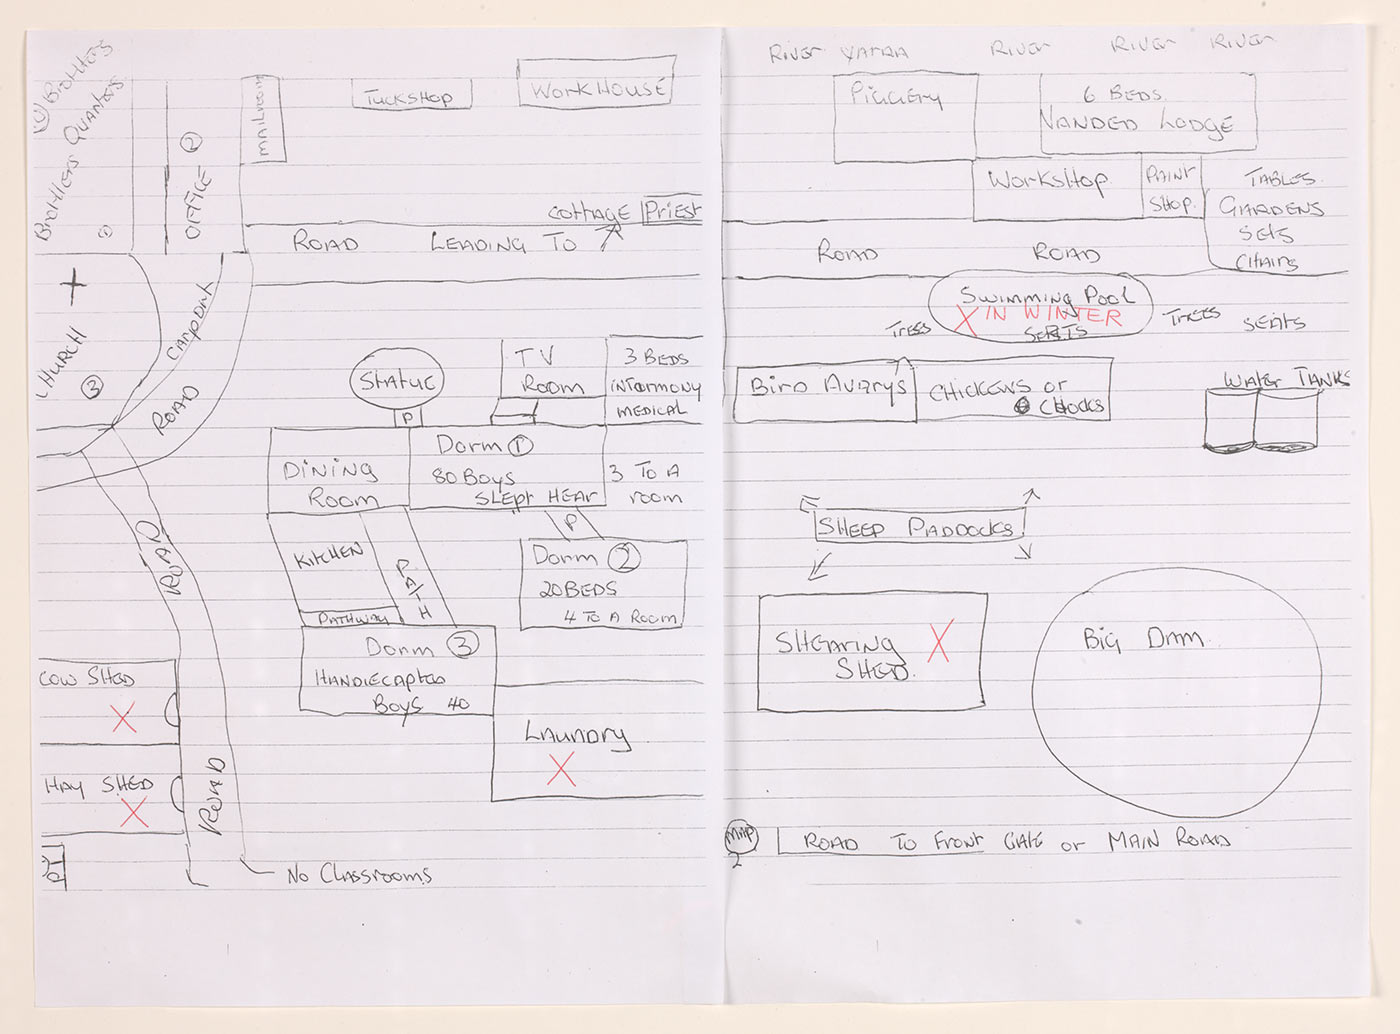 Brothers
Brothers Quarters
OFFICE 2
MAILROOM
TUCKSHOP
WORKHOUSE
COTTAGE Priest
ROAD LEADING TO
CHURCH
3
CARPORT
ROAD
STATUE
P
TV
ROOM
3 BEDS
INFORMONY
MEDICAL
DINING
ROOM
DORM 1
80 BOYS
SLEPT HEAR
3 TO A
room
KITCHEN
PATH
PATHWAY
P
DORM 2
20 BEDS
4 TO A ROOM
DORM 3
HANDIECAPTED
BOYS 40
ROAD
COW SHED
X
HAY SHED
X
ROAD
LAUNDRY
X
No CLASSROOMS
RIVER YARRA RIVER RIVER RIVER
PIGGERY
6 BEDS
NANDED LODGE
WORKSHOP
PAINT
SHOP.
TABLES
GARDENS
SETS
CHAIRS
ROAD ROAD
SWIMMING POOL
X IN WINTER
SEATS
TREES
TREES
SEATS
BIRD AVARYS
CHICKENS OR
CHOOKS
WATER TANKS
SHEEP PADDOCKS
SHEARING X
SHED.
BIG DAM.
MAP
2
ROAD TO FRONT GATE or MAIN ROAD